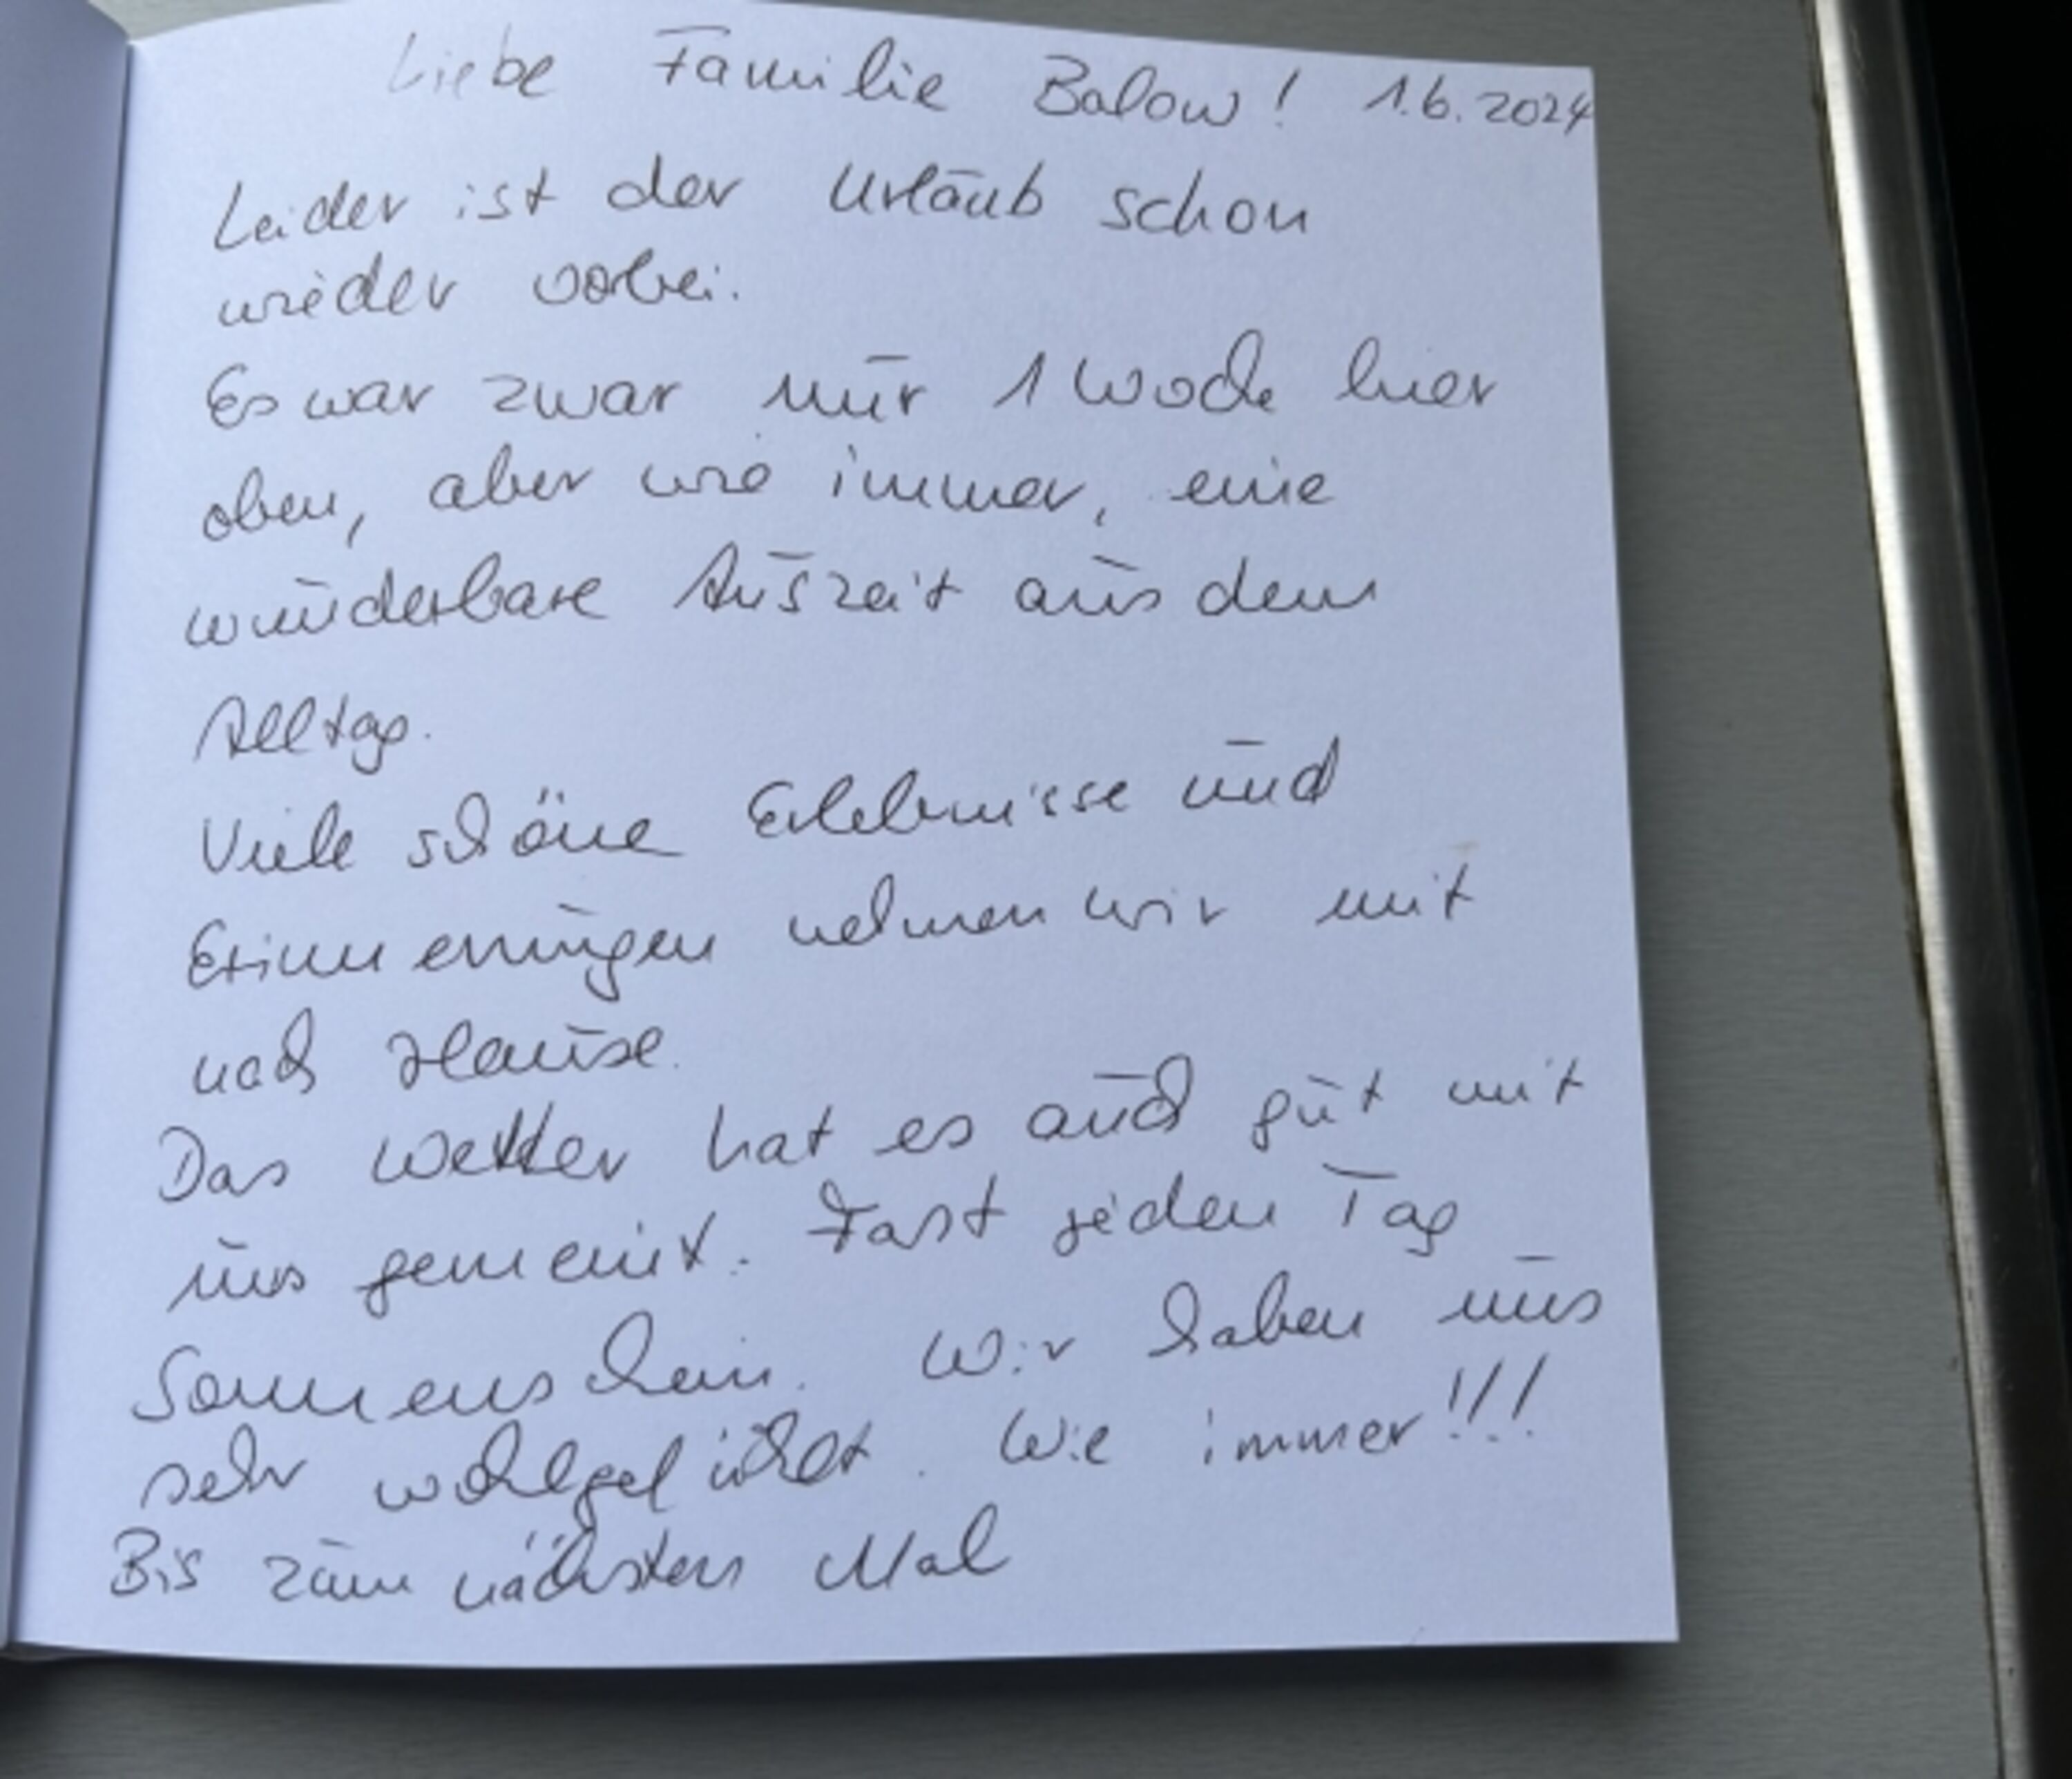 Liebe Familie Balow! 1.6.2024
Leider ist der Urlaub schon
wieder vorbei.
Es war zwar nur 1 Woche hier
oben, aber wie immer, eine
wunderbare Auszeit aus dem
Alltag.
Viele schöne Erlebnisse und
Erinnerungen nehmen wir mit
nach Hause.
Das Wetter hat es auch gut mit
uns gemeint. Fast jeden Tag
Sonnenschein. Wir haben uns
sehr wohlgefühlt. Wie immer!!!
Bis zum nächsten Mal